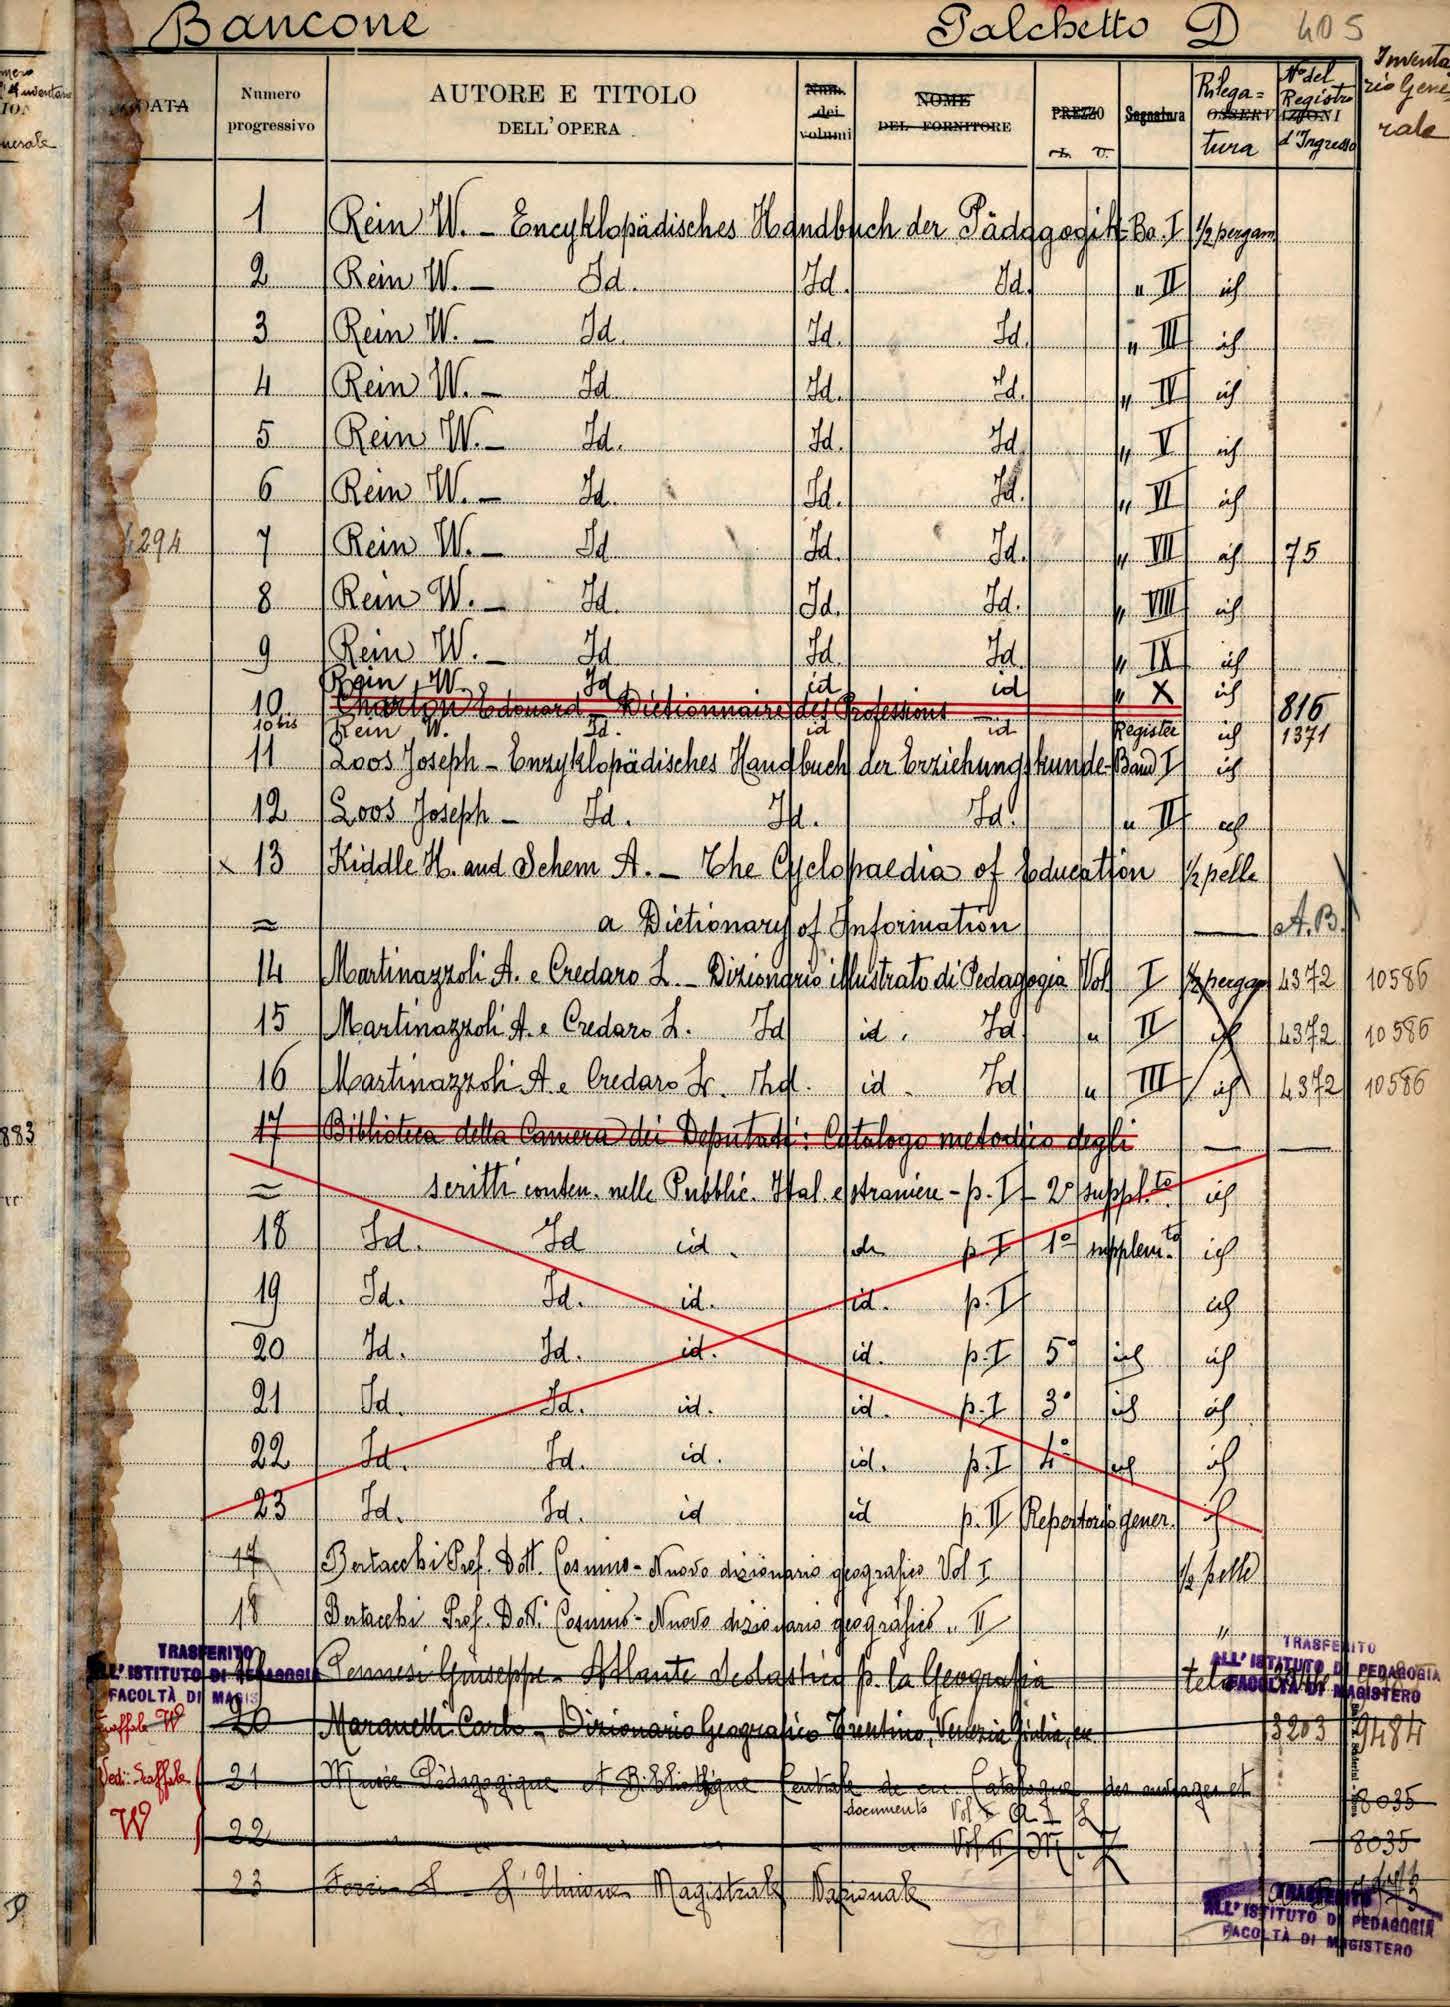 Bancone Palchetto D 405
DATA Numero progressivo AUTORE E TITOLO DELL'OPERA Num. dei volumi NOME DEL FORNITORE PREZZO Segnatura Rilega= OSSERVAZIONI tura N° del Registro d'Ingresso Inventario Generale
1 Rein W. – Encyklopädisches Handbuch der Pädagogik – Ba. I 1/2 pergam
2 Rein W. – Id. Id. Id. " II id
3 Rein W. – Id. Id. Id. " III id
4 Rein W. – Id. Id. Id. " IV id
5 Rein W. – Id. Id. Id. " V id
6 Rein W. – Id. Id. Id. " VI id
4294 7 Rein W. – Id Id. Id. " VII id 75
8 Rein W. – Id. Id. Id. " VIII id
9 Rein W. – Id Id. Id. " IX id
Rein W. Id. id id " X id
10 Charton Edouard – Dictionnaire des Professions 816
10 bis Rein W. Id. id id Register id 1371
11 Loos Joseph – Enzyklopädisches Handbuch der Erziehungskunde – Band I id
12 Loos Joseph – Id. Id. Id. " II id
x 13 Kiddle H. and Schem A. – The Cyclopaedia of Education 1/2 pelle
= a Dictionary of Information — A.B.
14 Martinazzoli A. e Credaro L. – Dizionario illustrato di Pedagogia Vol I 1/2 pergam 4372 10586
15 Martinazzoli A. e Credaro L. Id id. Id " II id 4372 10586
16 Martinazzoli A. e Credaro L. Id. id. Id " III id 4372 10586
883 17 Biblioteca della Camera dei Deputati: Catalogo metodico degli — —
= scritti conten. nelle Pubblic. Ital. e straniere – p. I – 2° suppl.to id
18 Id. Id id. id. p. I 1° supplem.to id
19 Id. Id. id. id. p. I id
20 Id. Id. id. id. p. I 5° id id
21 Id. Id. id. id. p. I 3° id id
22 Id. Id. id. id. p. I 4° id id
23 Id. Id. id id p. II Repertorio gener. id
17 Bertacchi Prof. Dott. Cosimo – Nuovo dizionario geografico Vol I 1/2 pelle
18 Bertacchi Prof. Dott. Cosimo – Nuovo dizionario geografico " II "
TRASFERITO ALL'ISTITUTO DI PEDAGOGIA FACOLTÀ DI MAGISTERO
19 Pennesi Giuseppe – Atlante Scolastico p. la Geografia tela
TRASFERITO ALL'ISTITUTO DI PEDAGOGIA FACOLTÀ DI MAGISTERO
Scaffale W 20 Maranelli Carlo – Dizionario Geografico Trentino, Venezia Giulia, ec. 3203 9484
Vedi: Scaffale W 21 Musée Pédagogique et Bibliothèque Centrale de en. Catalogue des ouvrages et 8035
documents Vol I A - L
22 " " " " Vol II M - Z 8035
23 L'Unione Magistrale Nazionale
TRASFERITO ALL'ISTITUTO DI PEDAGOGIA FACOLTÀ DI MAGISTERO